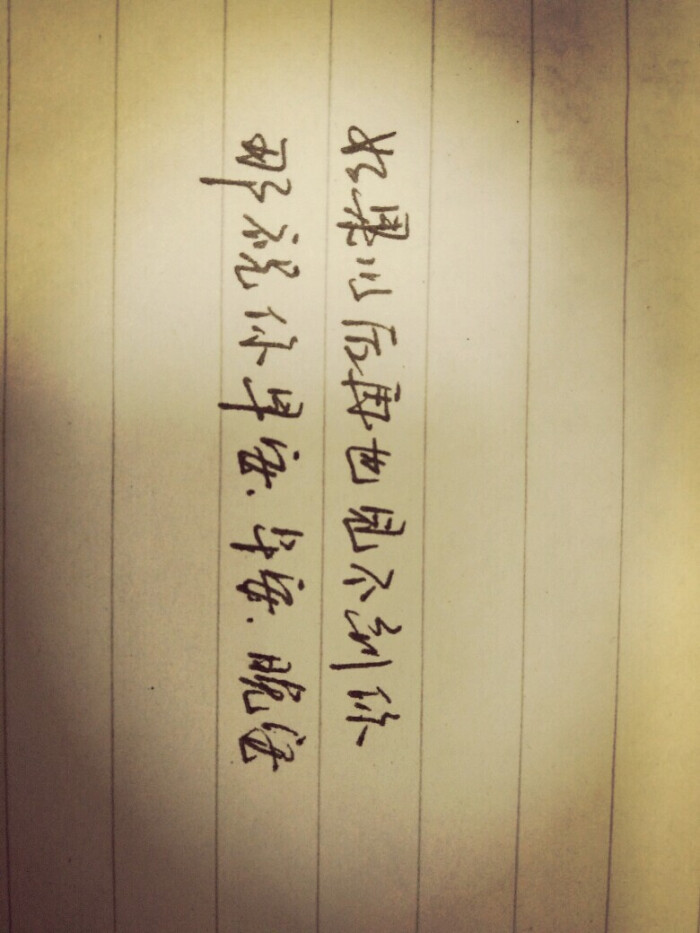 如果以后再也见不到你
那祝你早安.午安.晚安